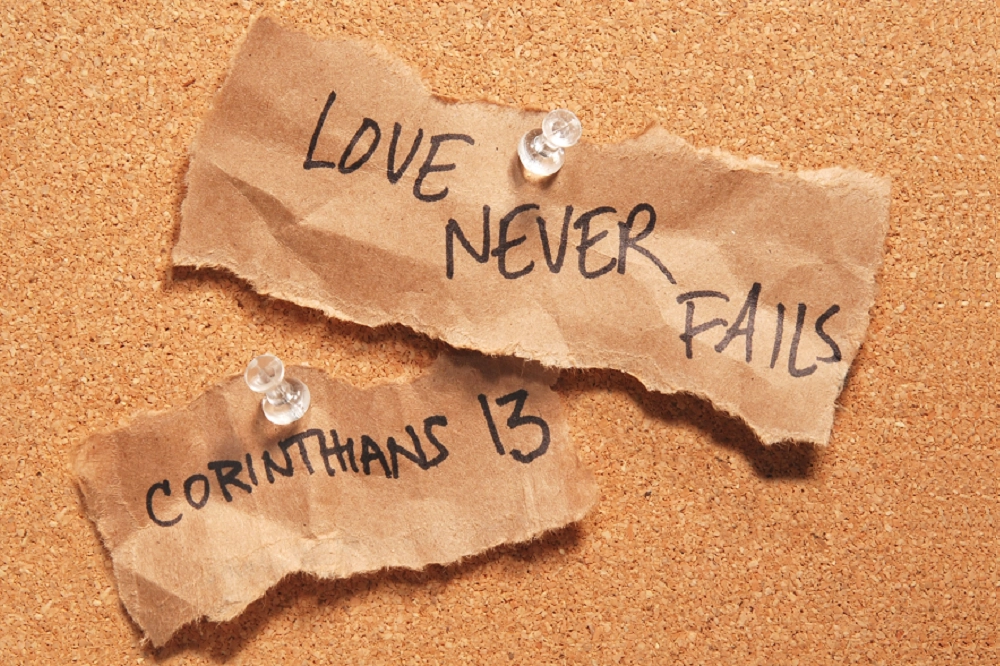 LOVE
NEVER
FAILS
CORINTHIANS 13